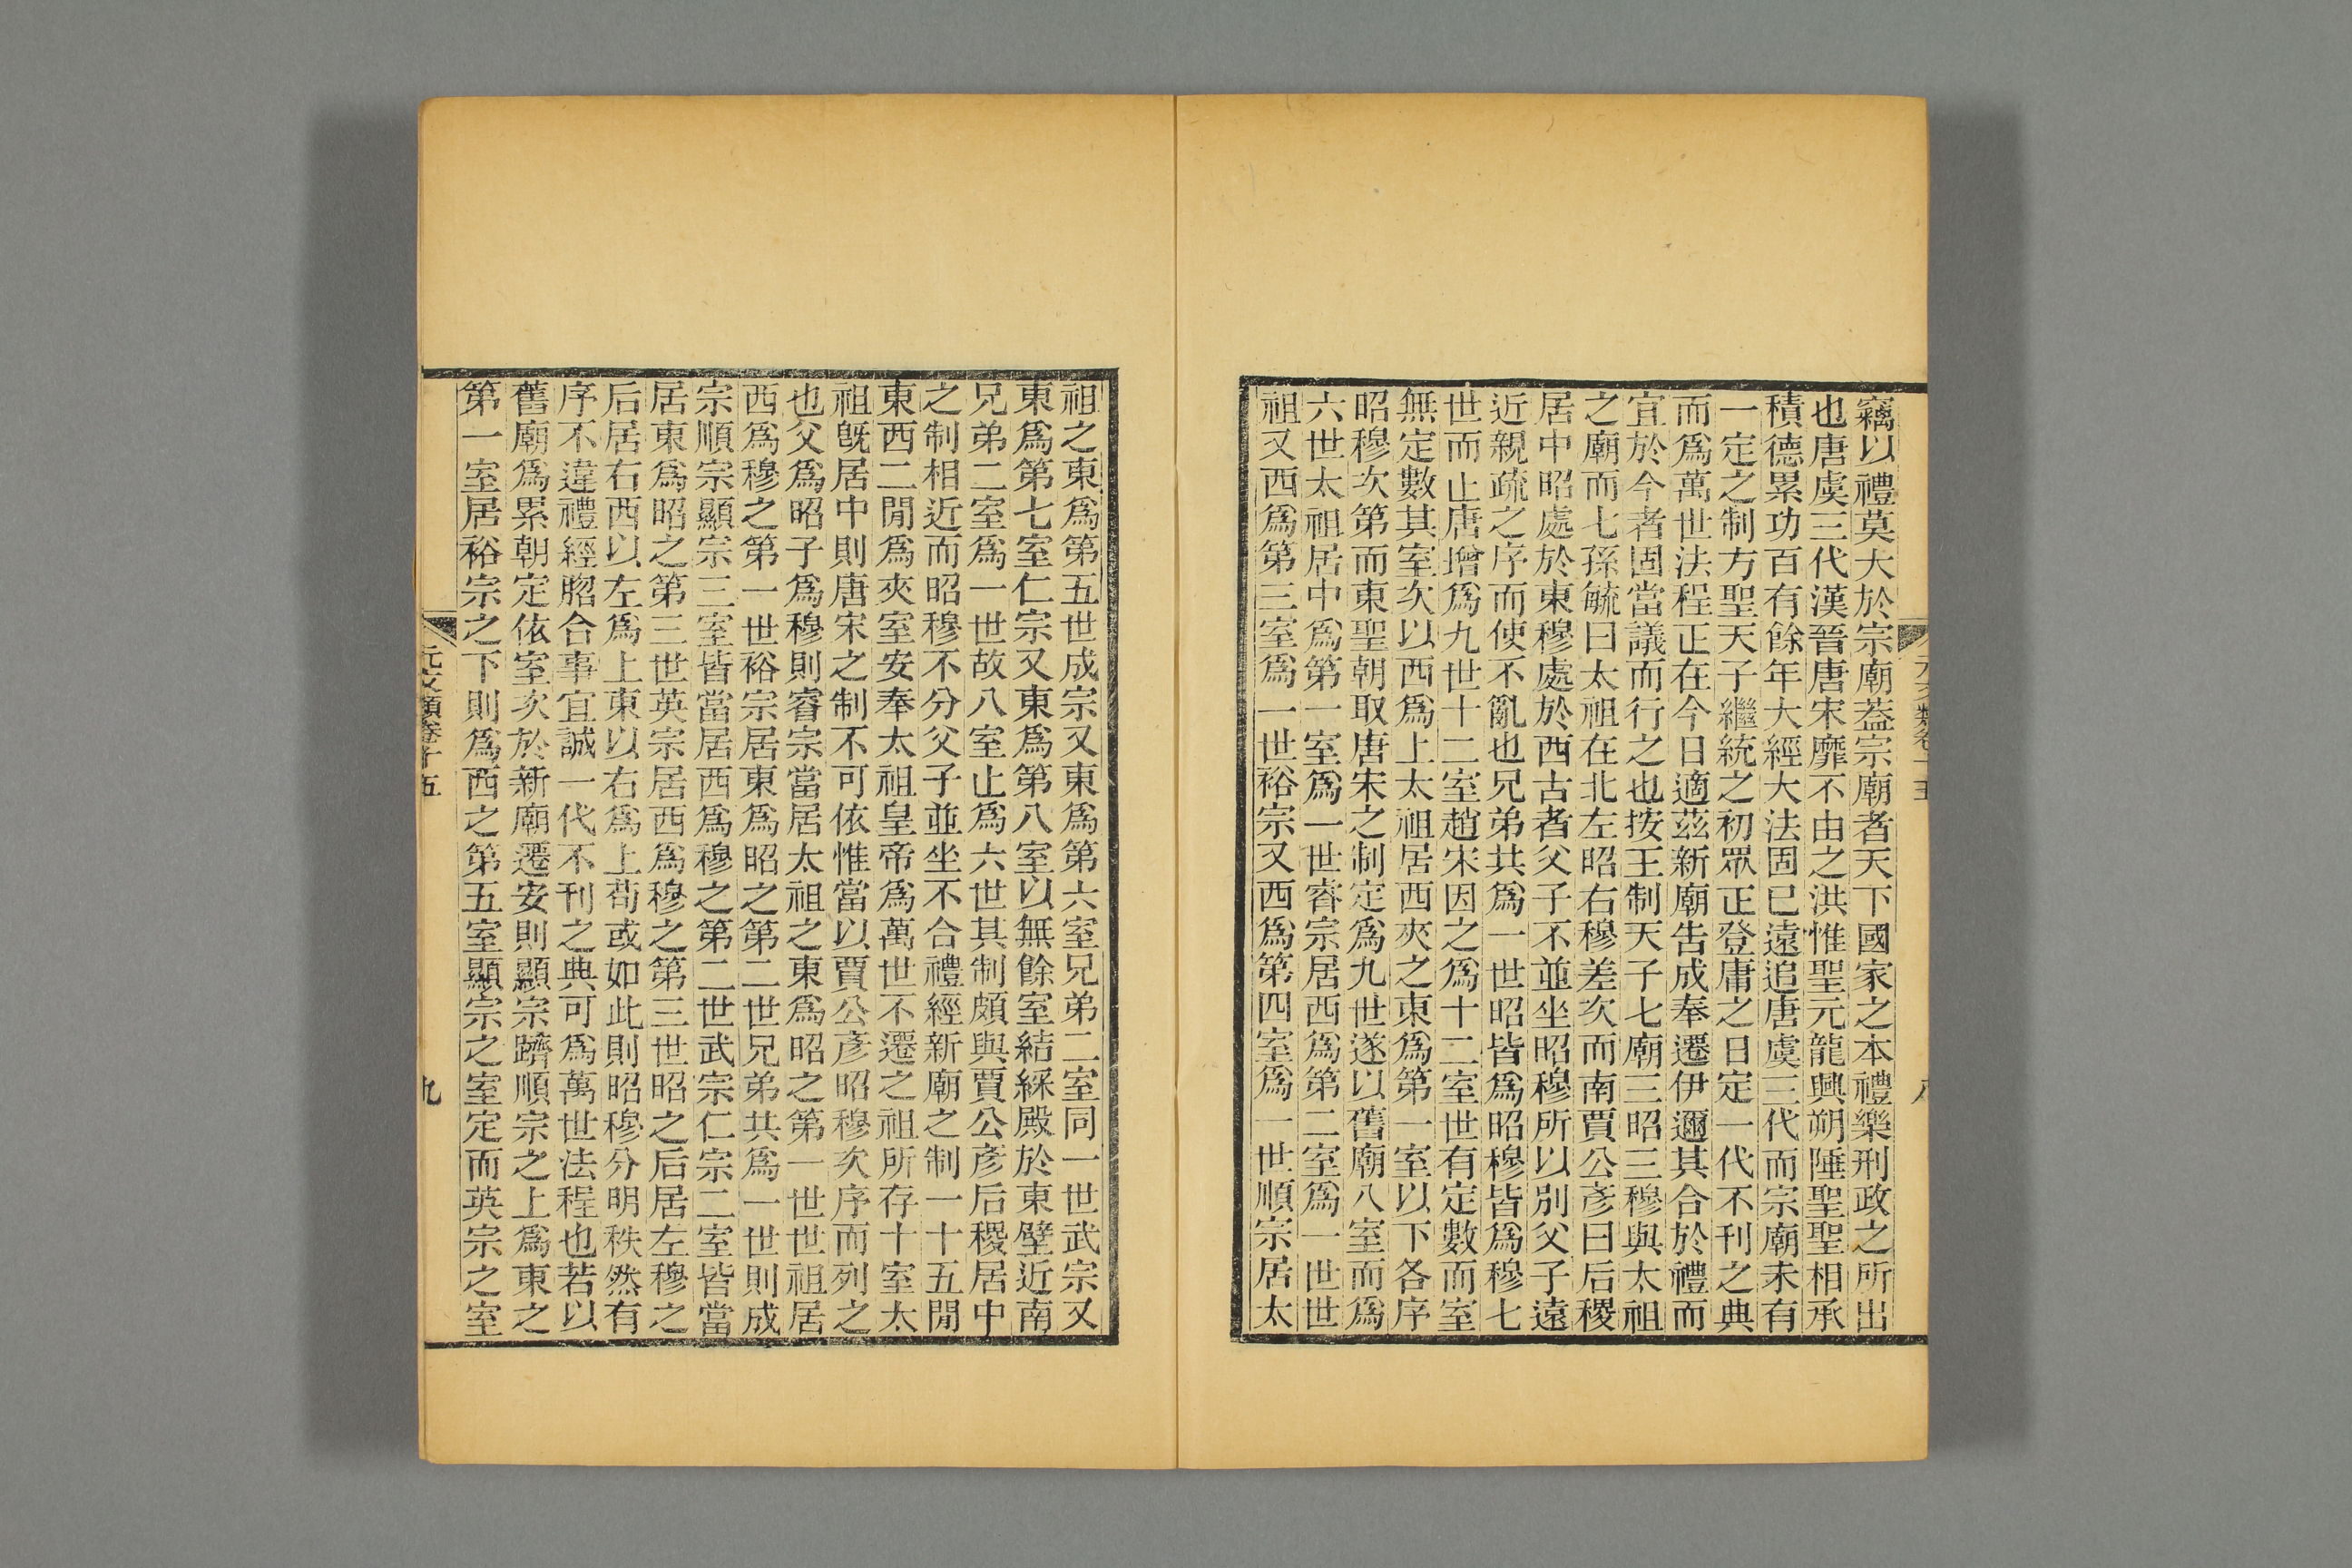 竊以禮莫大於宗廟葢宗廟者天下國家之本禮樂刑政之所出
也唐虞三代漢晉唐宋靡不由之洪惟聖元龍興朔陲聖聖相承
積德累功百有餘年大經大法固已遠追唐虞三代而宗廟未有
一定之制方聖天子繼統之初眾正登庸之日定一代不刊之典
而爲萬世法程正在今日適茲新廟告成奉遷伊邇其合於禮而
宜於今者固當議而行之也按王制天子七廟三昭三穆與太祖
之廟而七孫毓曰太祖在北左昭右穆差次而南賈公彥曰后稷
居中昭處於東穆處於西古者父子不並坐昭穆所以別父子遠
近親疏之序而使不亂也兄弟共爲一世昭皆爲昭穆皆爲穆七
世而止唐增爲九世十二室趙宋因之爲十二室世有定數而室
無定數其室次以西爲上太祖居西夾之東爲第一室以下各序
昭穆次第而東聖朝取唐宋之制定爲九世遂以舊廟八室而爲
六世太祖居中爲第一室爲一世睿宗居西爲第二室爲一世世
祖又西爲第三室爲一世裕宗又西爲第四室爲一世順宗居太
祖之東爲第五世成宗又東爲第六室兄弟二室同一世武宗又
東爲第七室仁宗又東爲第八室以無餘室結綵殿於東壁近南
兄弟二室爲一世故八室止爲六世其制頗與賈公彥后稷居中
之制相近而昭穆不分父子並坐不合禮經新廟之制一十五閒
東西二閒爲夾室安奉太祖皇帝爲萬世不遷之祖所存十室太
祖旣居中則唐宋之制不可依惟當以賈公彥昭穆次序而列之
也父爲昭子爲穆則睿宗當居太祖之東爲昭之第一世世祖居
西爲穆之第一世裕宗居東爲昭之第二世兄弟共爲一世則成
宗順宗顯宗三室皆當居西爲穆之第二世武宗仁宗二室皆當
居東爲昭之第三世英宗居西爲穆之第三世昭之后居左穆之
后居右西以左爲上東以右爲上茍或如此則昭穆分明秩然有
序不違禮經脗合事宜誠一代不刊之典可爲萬世法程也若以
舊廟爲累朝定依室次於新廟遷安則顯宗躋順宗之上爲東之
第一室居裕宗之下則爲西之第五室顯宗之室定而英宗之室
元文類卷十五
九